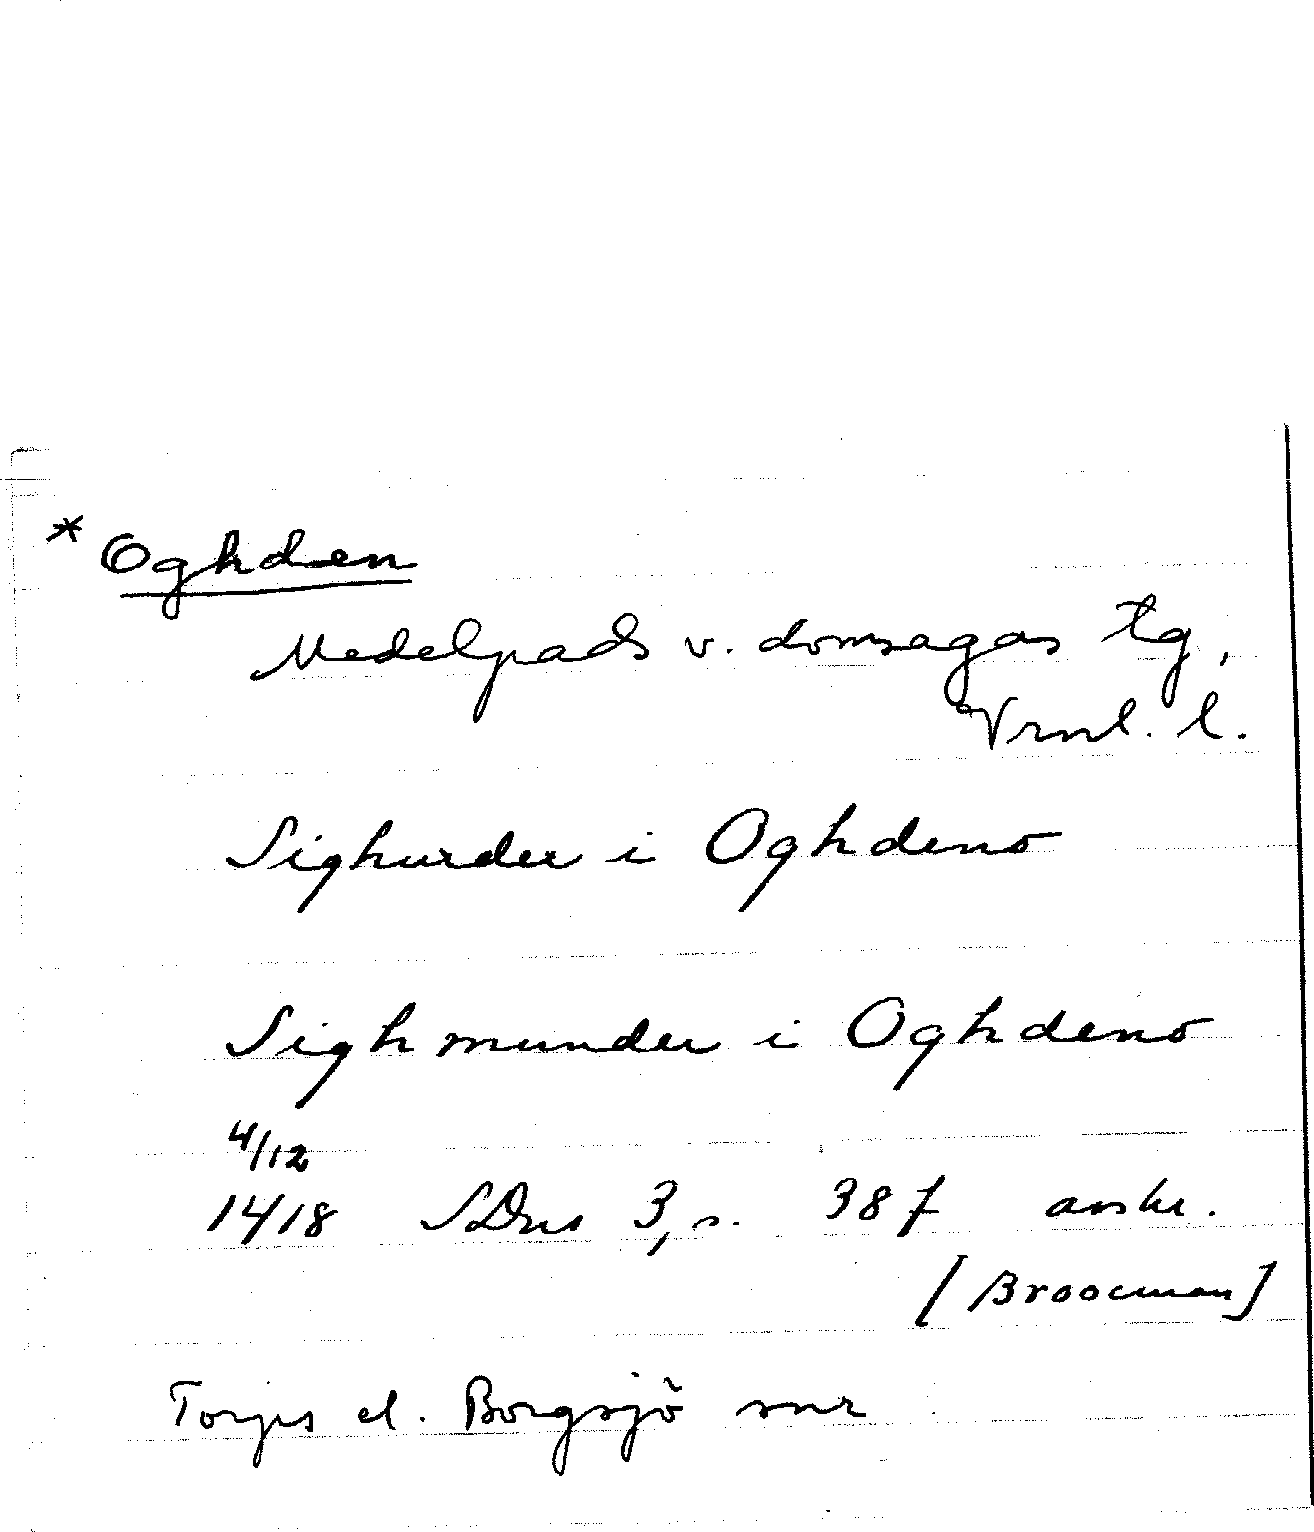 * Oghden
Medelpads v. domsagas tg,
Vrnl. l.
Sighurder i Oghdenō
Sighmunder i Oghdenō
4/12
1418 SDns 3, s. 387 avskr.
[Broocman]
Torps el. Borgsjö snr